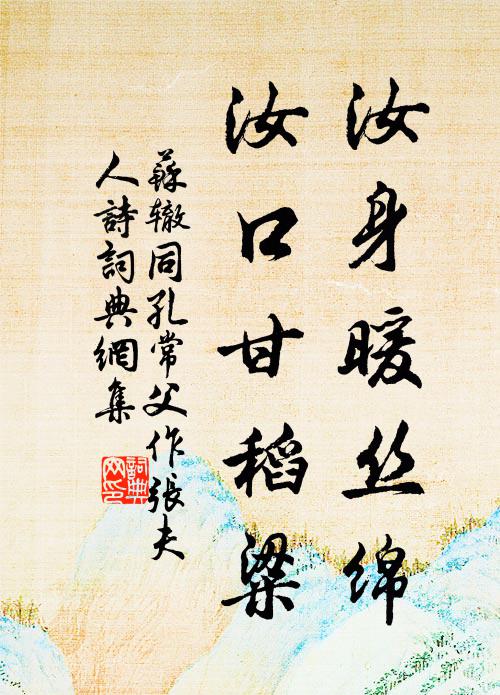 汝身暖丝绵
汝口甘稻粱
蘇辙同孔常父作張夫
人詩詞典網集
詞典